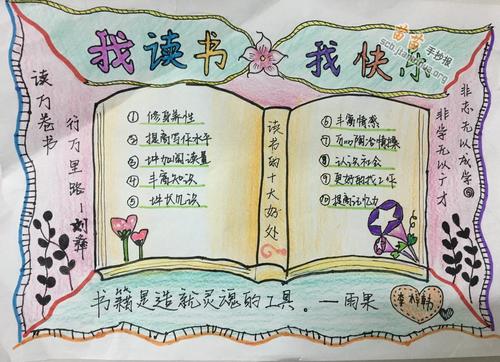 我读书 我快乐
苗苗手抄报
scb.jianbihua.org
读万卷书
行万里路—刘彝
① 修身养性
② 提高写作水平
③ 增加阅读量
④ 丰富知识
⑤ 增长见识
读书的十大好处
⑥ 丰富情感
⑦ 可以陶冶情操
⑧ 认识社会
⑨ 更好的找工作
⑩ 提高记忆力
非志无以成学
非学无以广才
书籍是造就灵魂的工具。—雨果